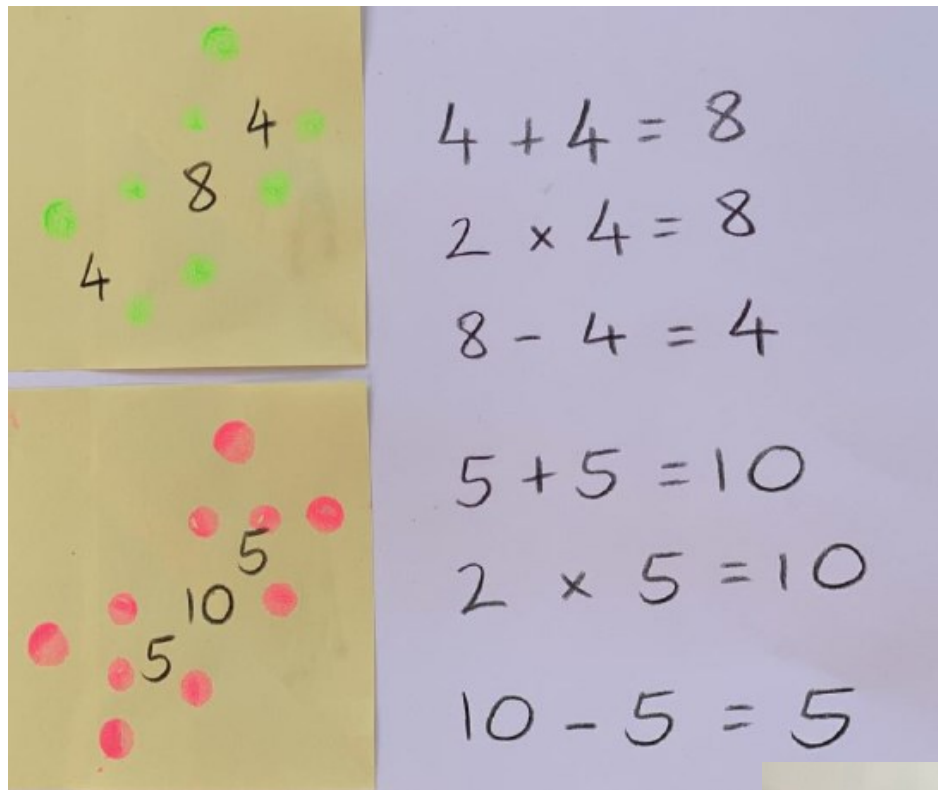 4
8
4
5
10
5
4 + 4 = 8
2 × 4 = 8
8 - 4 = 4
5 + 5 = 10
2 × 5 = 10
10 - 5 = 5